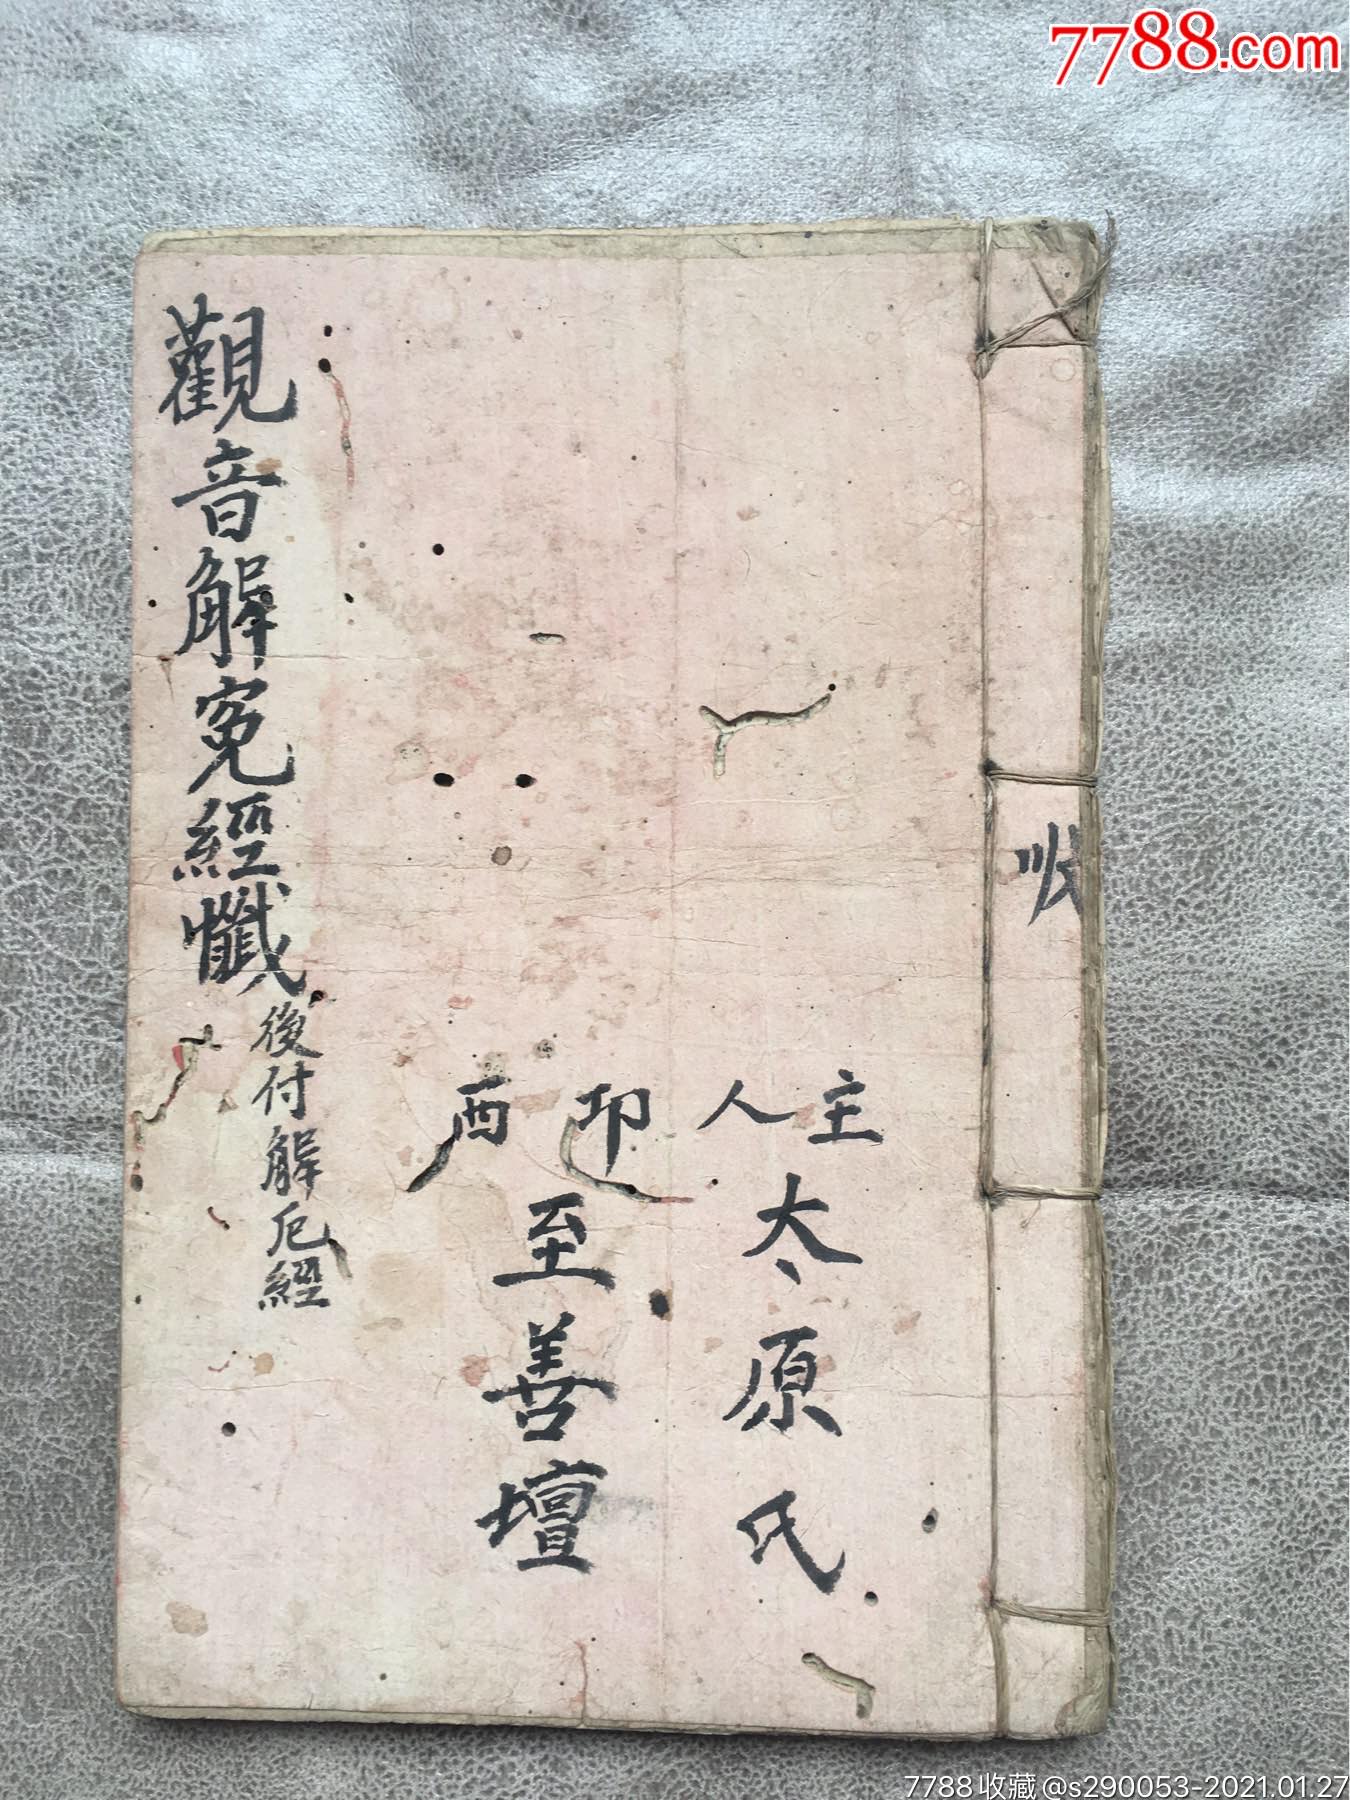 7788.com
主人
太原氏
印西
至善壇
觀音解寃經懺
後付解厄經
7788收藏@s290053-2021.01.27